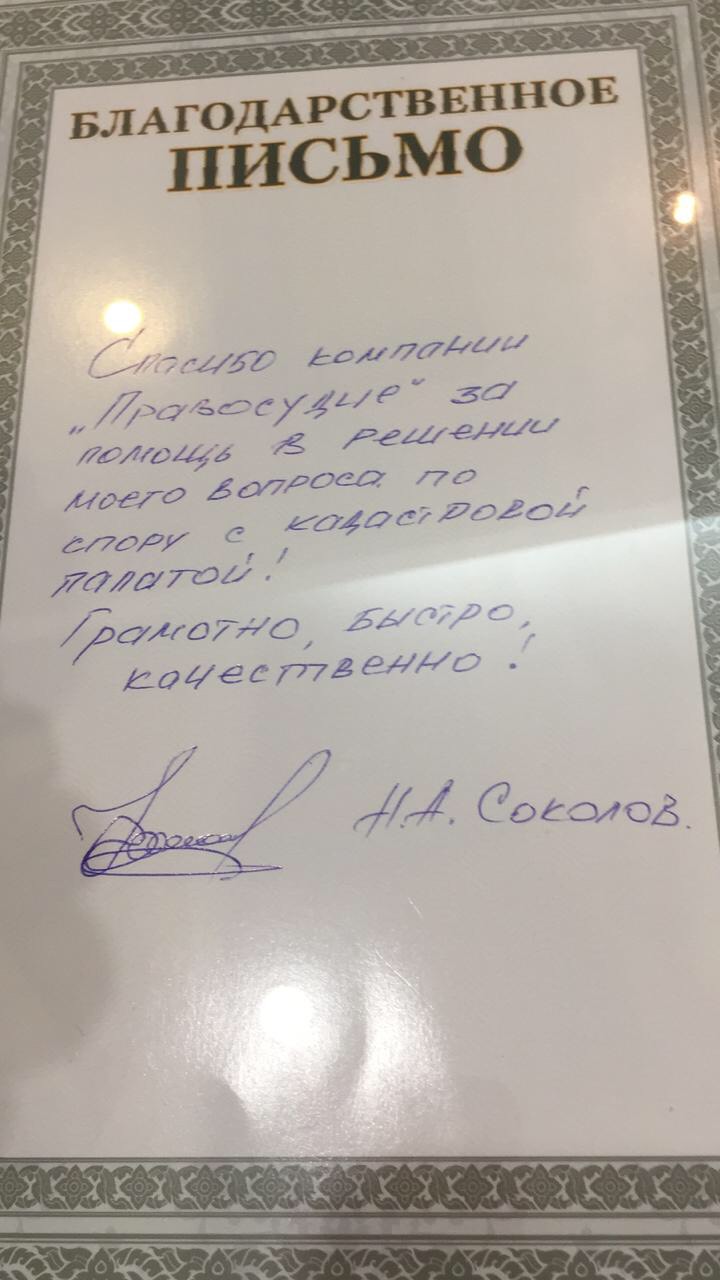 БЛАГОДАРСТВЕННОЕ
ПИСЬМО
Спасибо компании
„Правосудие“ за
помощь в решении
моего вопроса по
спору с кадастровой
палатой!
Грамотно, быстро,
качественно!
Н.А. Соколов.